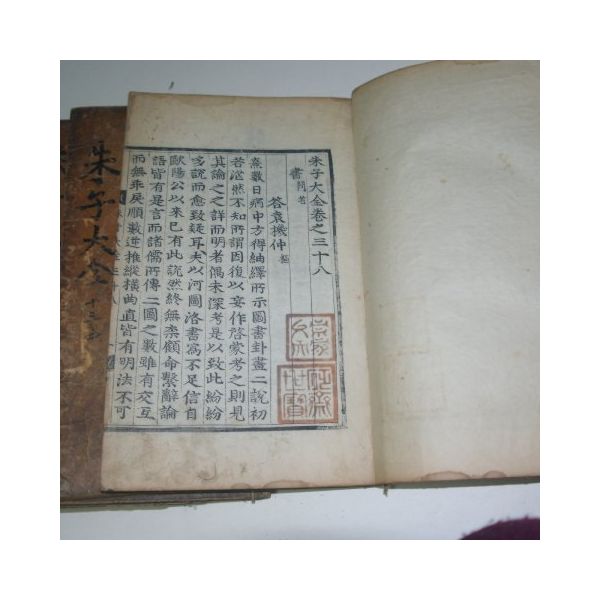 朱子大全卷之三十八
書 問答
答袁機仲 樞
熹數日病中方得紬繹所示圖書卦畫二說初
若茫然不知所謂因復以妄作啓蒙考之則見
其論之之詳而明者偶未深考是以致此紛紛
多說而愈致疑耳夫以河圖洛書爲不足信自
歐陽公以來已有此說然終無柰顧命繫辭論
語皆有是言而諸儒所傳二圖之數雖有交互
而無乖戾順數逆推縱橫曲直皆有明法不可
朱子大全
世寶